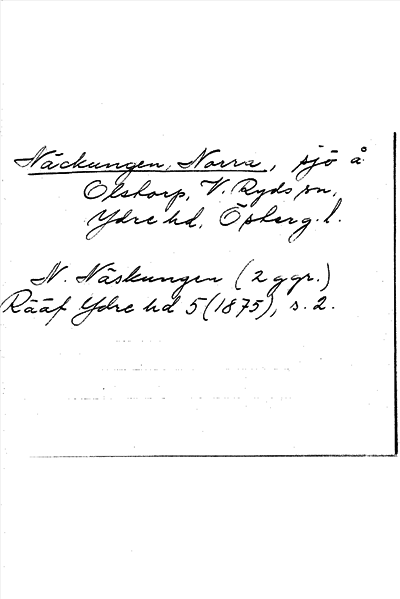 Näckungen, Norra, sjö å
Olstorp, V. Ryds sn,
Ydre hd, Östergl.
N. Näskungen (2 ggr.)
Rääf Ydre hd 5 (1875), s. 2.